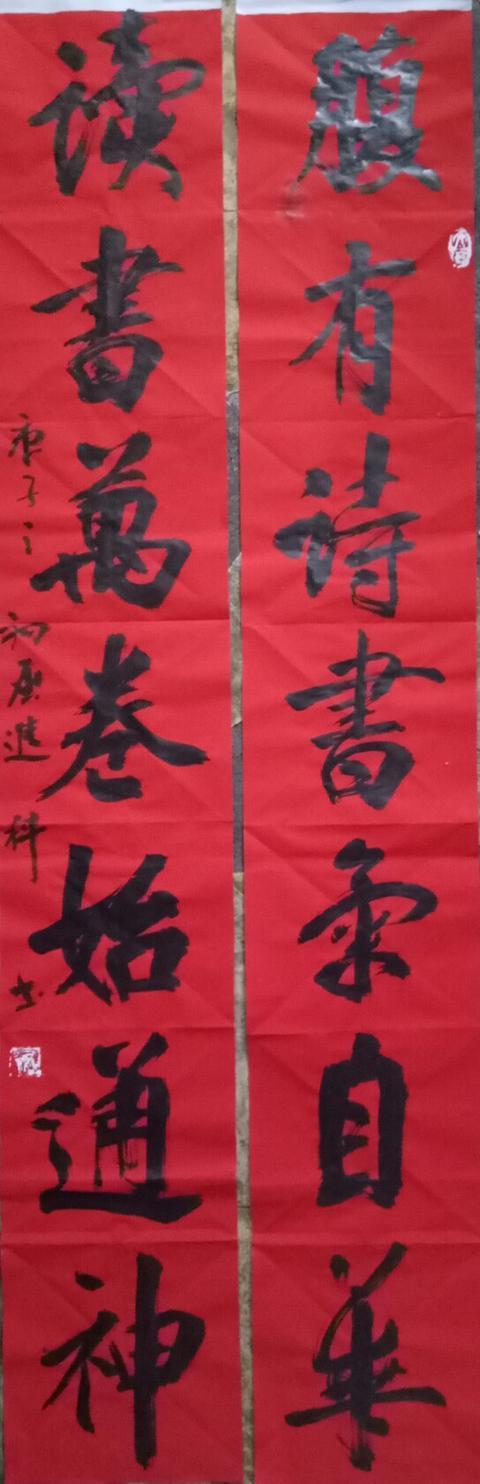 腹有詩書氣自華
讀書萬卷始通神
庚子之初唐進科书